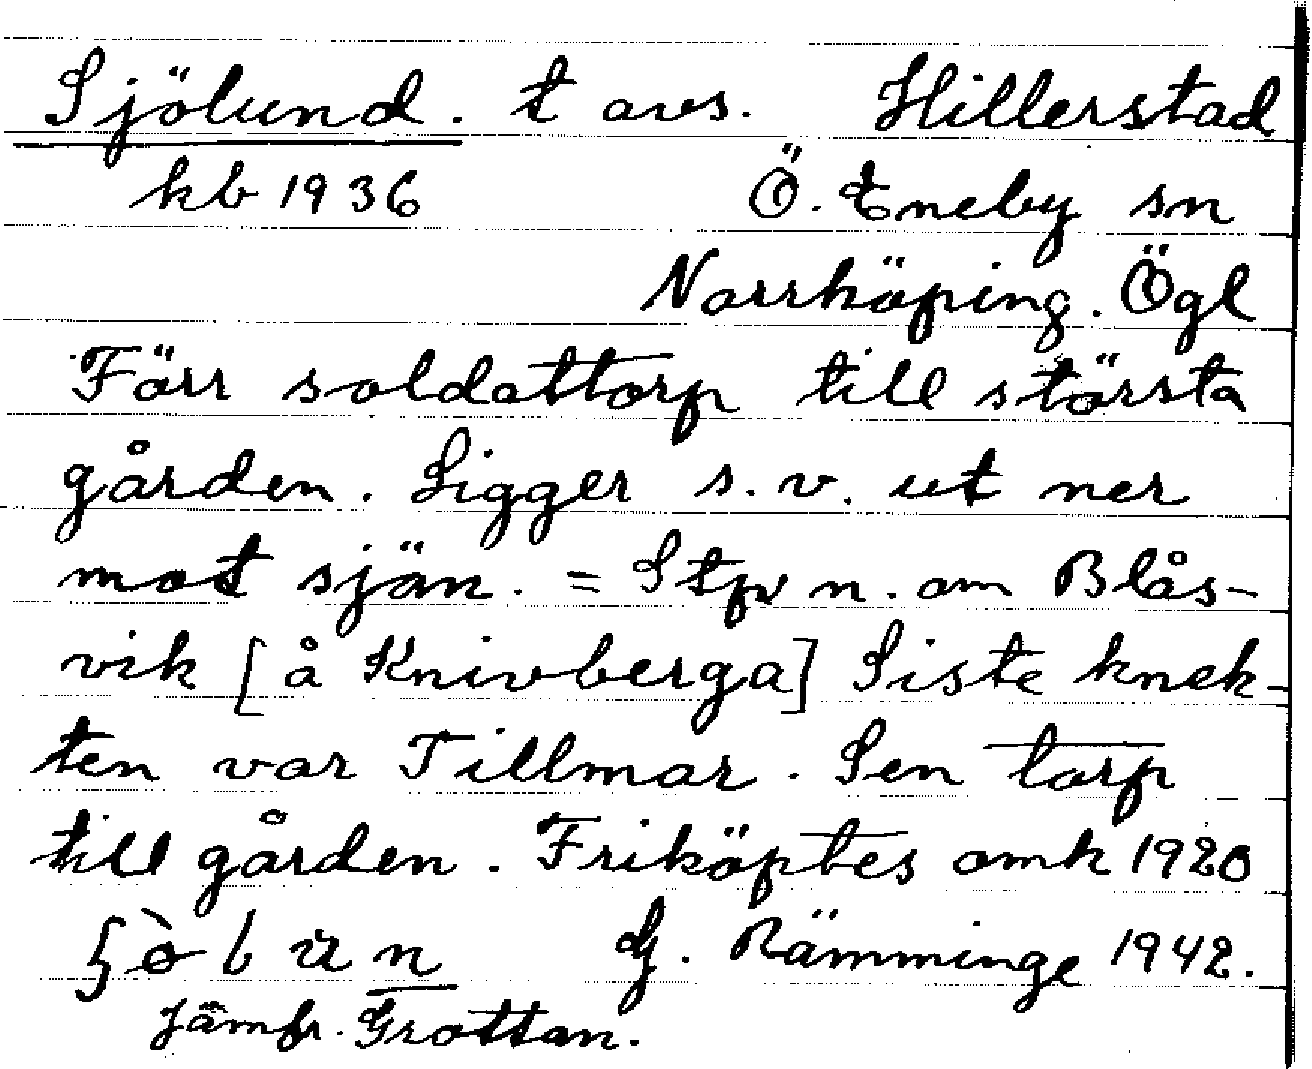 Sjölund. t avs. Hillerstad
kb 1936 Ö. Eneby sn
Norrköping. Ögl
Förr soldattorp till största
gården. Ligger s.v. ut ner
mot sjön. = Stpv n. om Blås-
vik [å Knivberga] Siste knek-
ten var Tillmar. Sen torp
till gården. Friköptes omk 1920
G. Rämminge 1942.
Jämfr. Grottan.